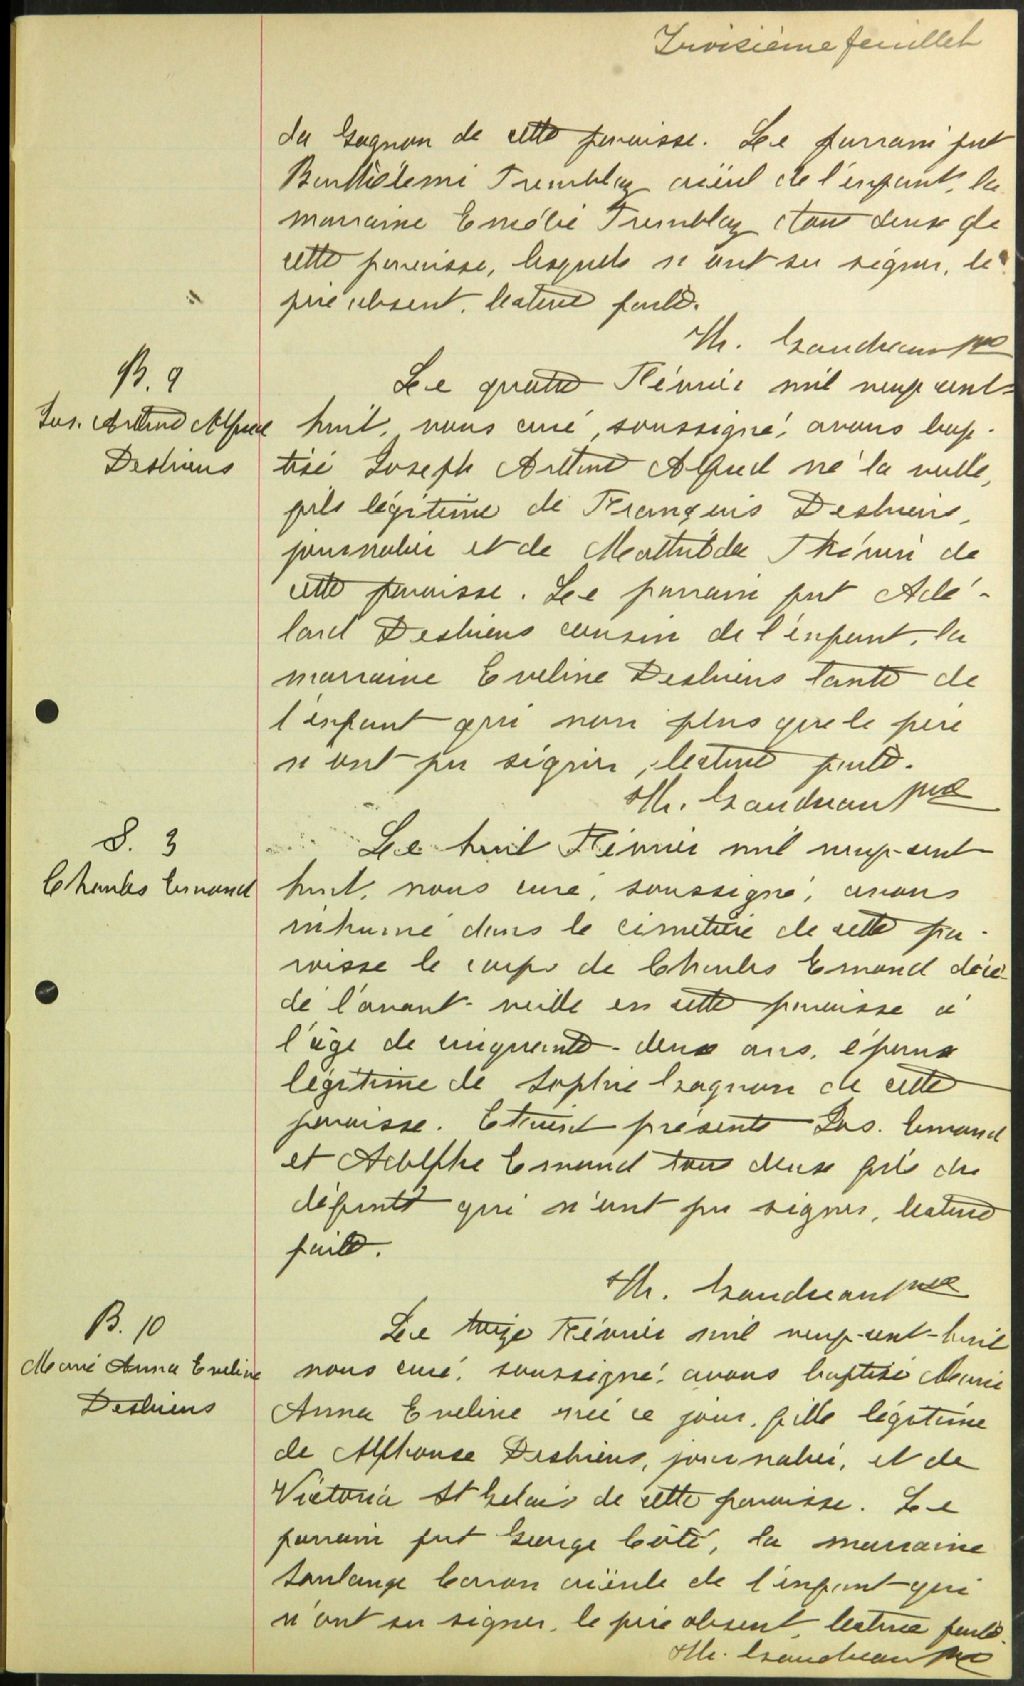 Troisième feuillet
da Gagnon de cette paroisse. Le parrain fut
Barthélemi Tremblay aïeul de l'enfant, la
marraine Emélie Tremblay tous deux de
cette paroisse, lesquels n'ont su signer, le
père absent. lecture faite.
Th. Gaudreau ptre
B. 9
Jos. Arthur Alfred
Desbiens
Le quatre Février mil neuf cent-
huit, nous curé, soussigné, avons bap-
tisé Joseph Arthur Alfred né la veille,
fils légitime de François Desbiens,
journalier et de Mathilda de
cette paroisse. Le parrain fut Adé-
lard Desbiens cousin de l'enfant, la
marraine Eveline Desbiens tante de
l'enfant qui non plus que le père
n'ont pu signer, lecture faite.
Th. Gaudreau ptre
S. 3
Charles Emond
Le huit Février mil neuf-cent
huit, nous curé, soussigné, avons
inhumé dans le cimetière de cette pa-
roisse le corps de Charles Emond décé-
dé l'avant-veille en cette paroisse à
l'âge de cinquante-deux ans, époux
légitime de Sophie Gagnon de cette
paroisse. Etaient présents Jos. Emond
et Adolphe Emond tous deux fils du
défunt qui n'ont pu signer, lecture
faite.
Th. Gaudreau ptre
B. 10
Marie Anna Eveline
Desbiens
Le treize Février mil neuf-cent-huit
nous curé, soussigné, avons baptisé Marie
Anna Eveline née ce jour, fille légitime
de Alphonse Desbiens, journalier, et de
Victoria St Gelais de cette paroisse. Le
parrain fut George Côté, la marraine
Solange Caron aïeule de l'enfant qui
n'ont su signer, le père absent, lecture faite.
Th. Gaudreau ptre